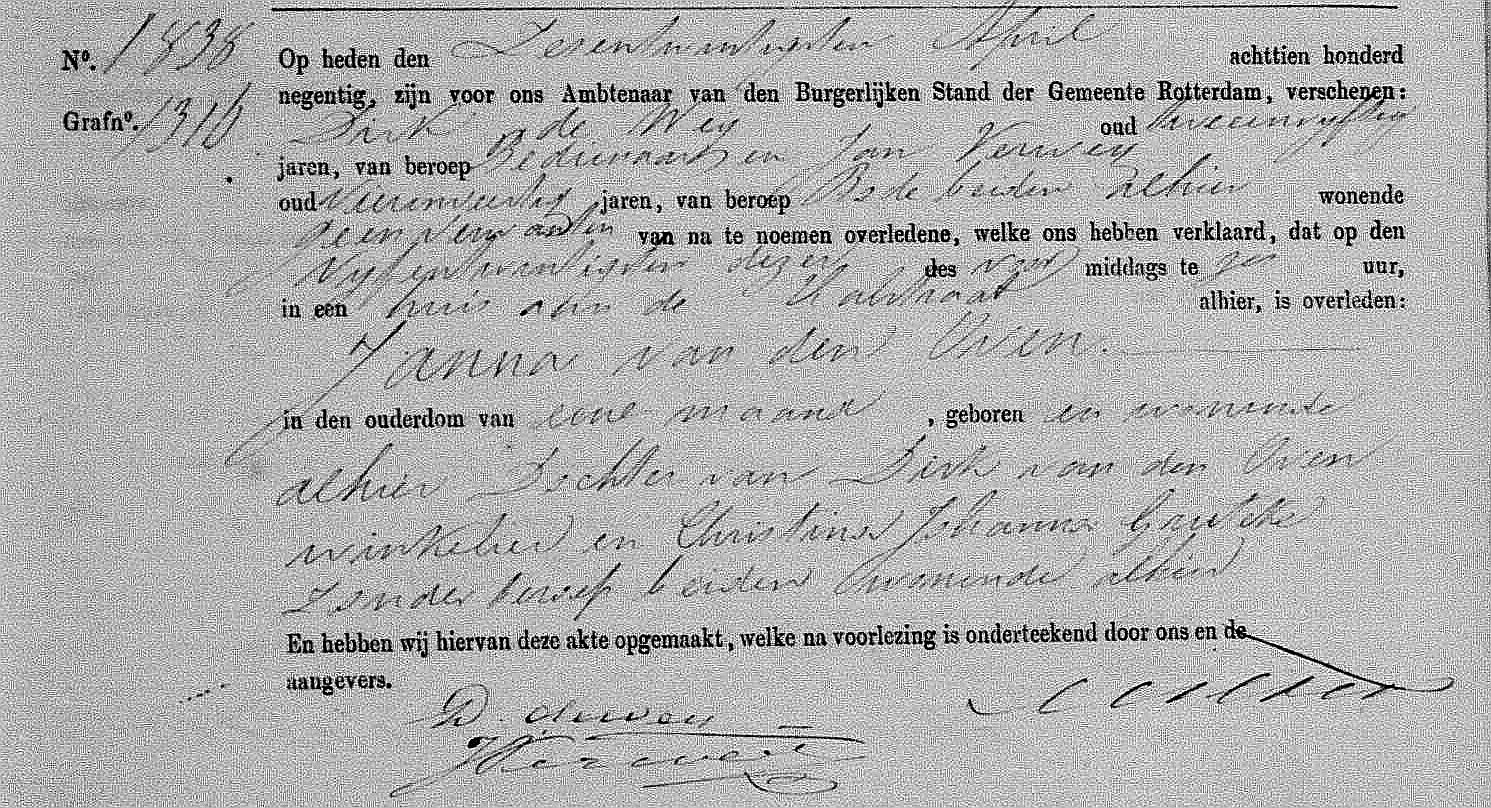 Nº. 1838 Op heden den Zesentwintigsten April achttien honderd
negentig, zijn voor ons Ambtenaar van den Burgerlijken Stand der Gemeente Rotterdam, verschenen:
Grafnº. 1316 Dirk de Wey oud tweeenvyftig
jaren, van beroep Bedienaar en Jan Verwey
oud Vierenveertig jaren, van beroep Bode beiden alhier wonende
geen Verwanten van na te noemen overledene, welke ons hebben verklaard, dat op den
Vyfentwintigsten dezer des voor middags te zes uur,
in een huis aan de alhier, is overleden:
Janna van den Oven.
in den ouderdom van eene maand, geboren en wonende
alhier Dochter van Dirk van den Oven
winkelier en Christina Johanna
zonder beroep beiden wonende alhier
En hebben wij hiervan deze akte opgemaakt, welke na voorlezing is onderteekend door ons en de
aangevers.
D. de wey
J Verwey